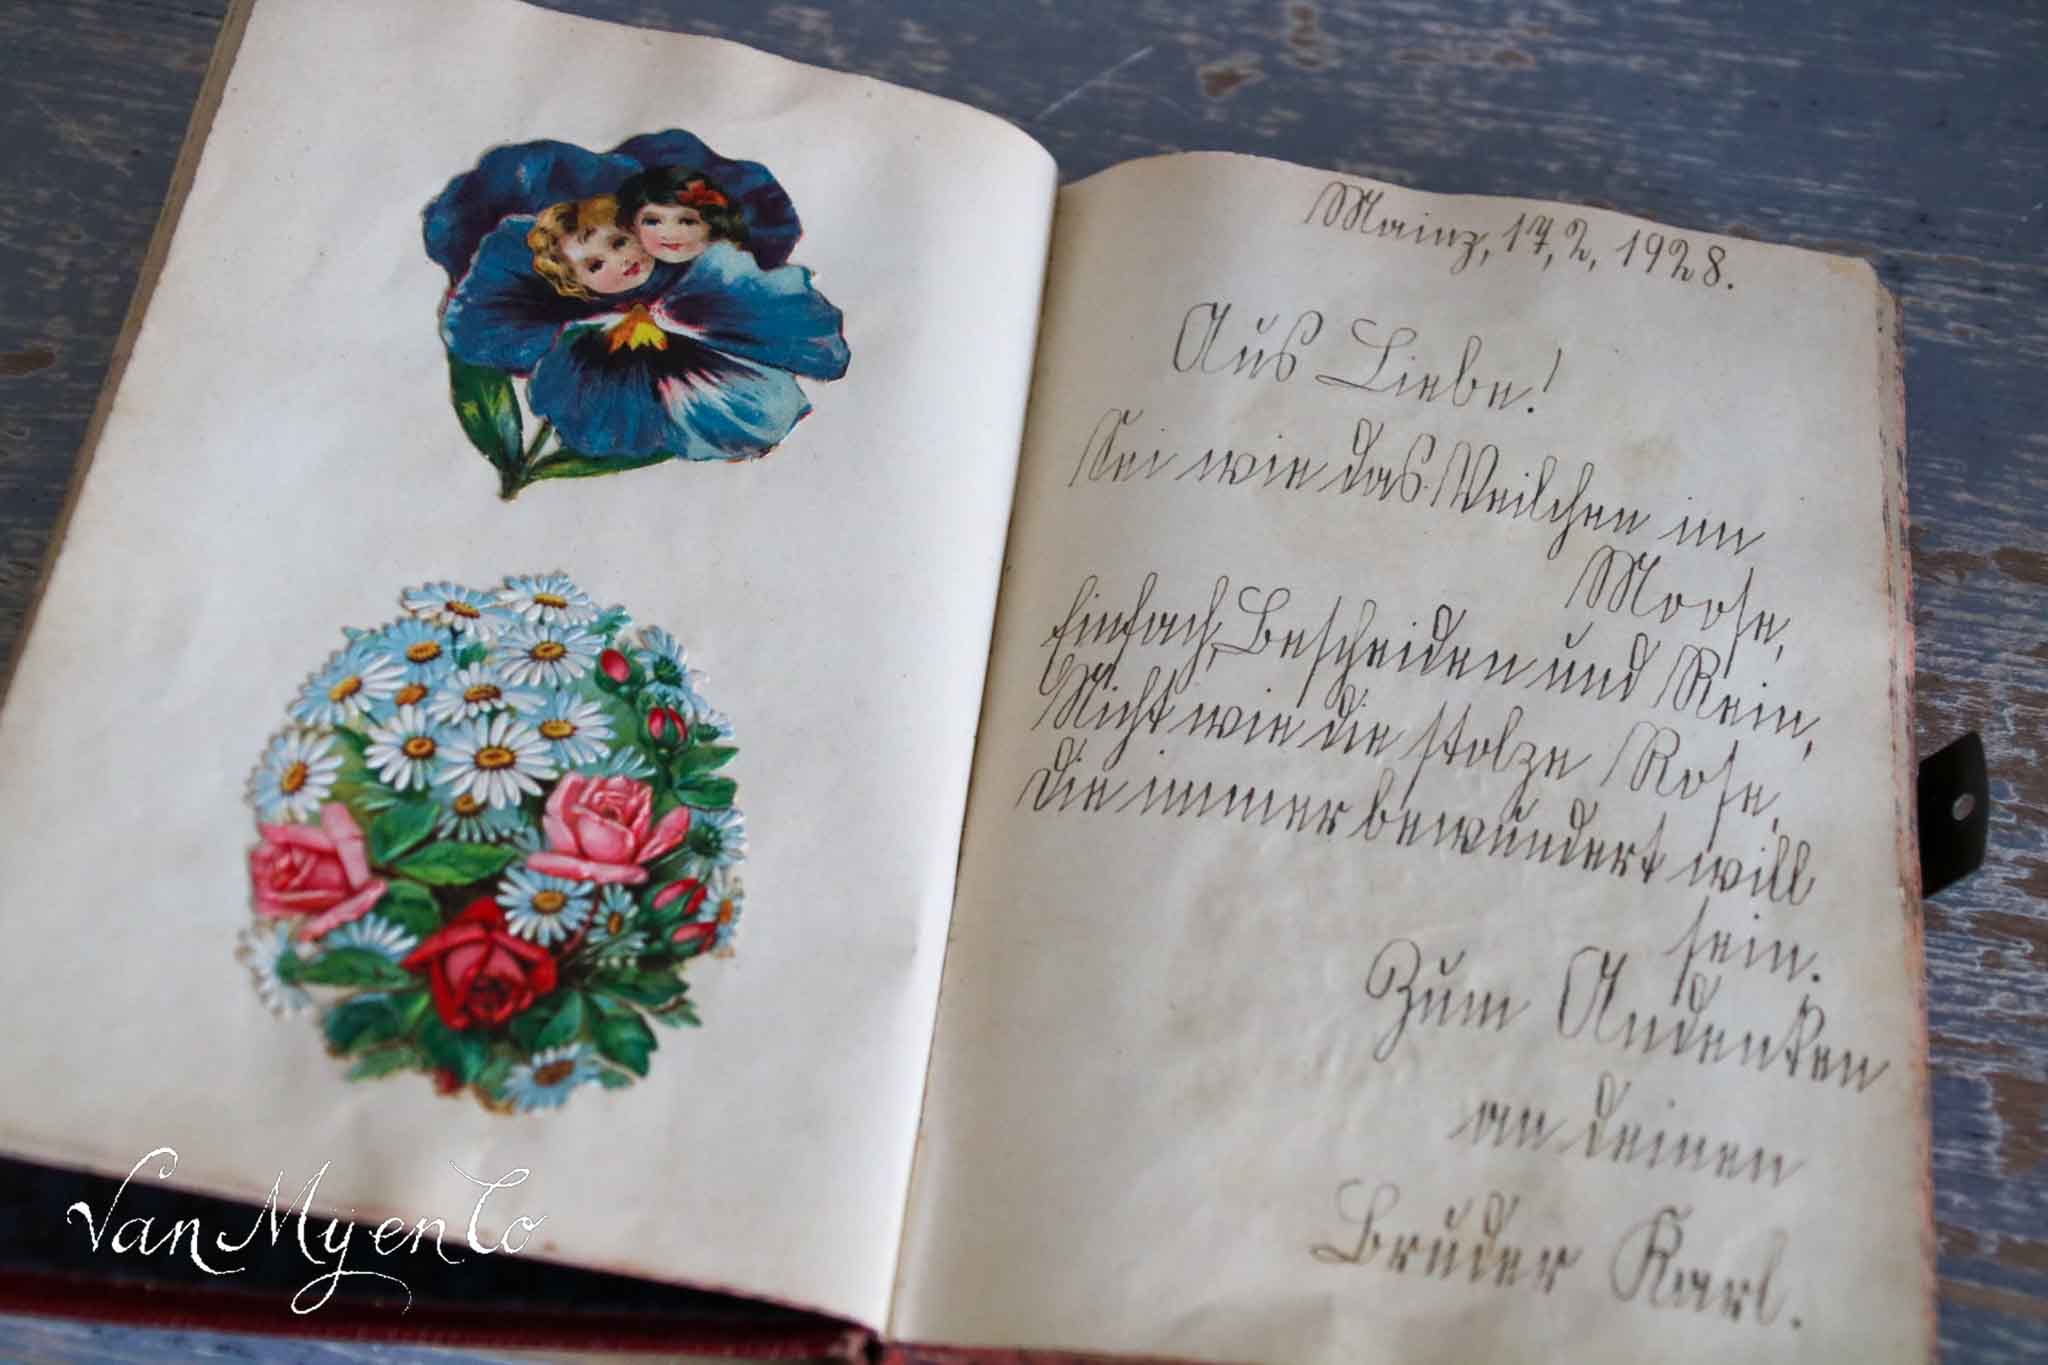 Mainz, 17, 2, 1928.
Aus Liebe!
Sei wie das Veilchen im
Moose,
Einfach, Bescheiden und Rein,
Nicht wie die stolze Rose,
die immer bewundert will
sein.
Zum Andenken
an deinen
Bruder Karl.
Van Mij en Co